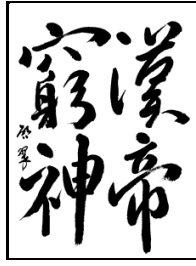 漢帝
窮神